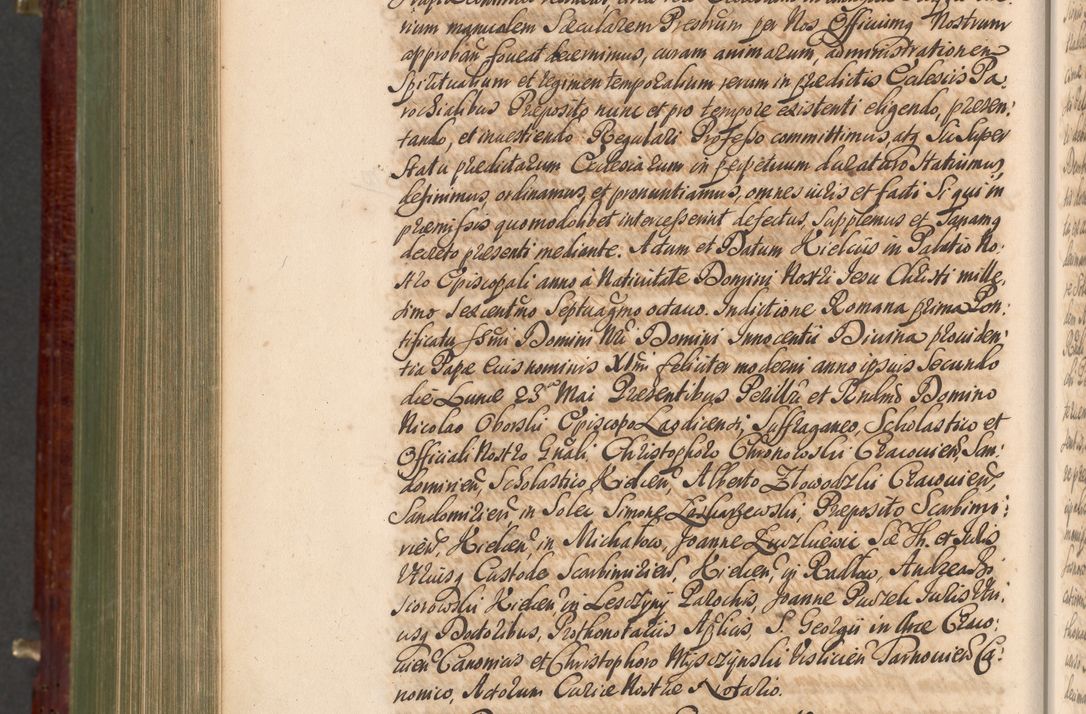 rium manualem Sæcularem Presbrum per Nos Officiumq Nostrum
approban foveat decernimus, curam animarum, administrationem
Spiritualium et regimen temporalium rerum in prædictis Ecclesiis Pa:
rochialibus Præposito nunc et pro tempore existenti eligendo, præsen:
tando, et investiendo Regulari Professo committimus, atq Su super
statu prædictarum Ecclesiarum in perpetuum duraturo statuimus,
definimus, ordinamus, et pronuntiamus, omnes iuris et facti Si qui in
præmissis quomodolibet intercesserint defectus, Supplemus et Sanamq
decreto præsenti mediante. Actum et Datum Kielciis in Palatio No:
stro Episcopali anno à Nativitate Domini Nostri Iesu Christi mille:
simo Sexcentmo Septuagmo octavo. Indictione Romana prima Pon:
tificatus Ssmi Domini Nri Domini Innocentii Divina providen:
tia Papæ Eius nominis XI mi feliciter moderni anno ipsius Secundo
die Lunæ 23 Mai Præsentibus Perillri et Rndmo Domino
Nicolao Oborski Episcopo Laodicensi, Suffraganeo, Scholastico et
Officiali Nostro Gnali, Christophoro Chronowski Cracovien, San:
domirien, Scholastico, Kielcen, Alberto Ztowodzki Cracovien,
Sandomirien in Solec Simone Leskarzewski, Præposito Scarbimi:
rien, Kielcen, in Michałow, Joanne Sæ Th. et Iuris
Utriusq Custode Scarbimirien, Kielcen, in Radłow, Andrea Bo
Kielcen, in Lesczyny Parochis, Joanne Puszek Iuris Utri:
usq Doctoribus, Prothonotariis Aplicis, S. Georgii in Arce Craco:
vien Canonicis et Christophoro Mysczynski Vislicien Tarnovien Ca:
nonico, Actorum Curiæ Nostræ Notario.